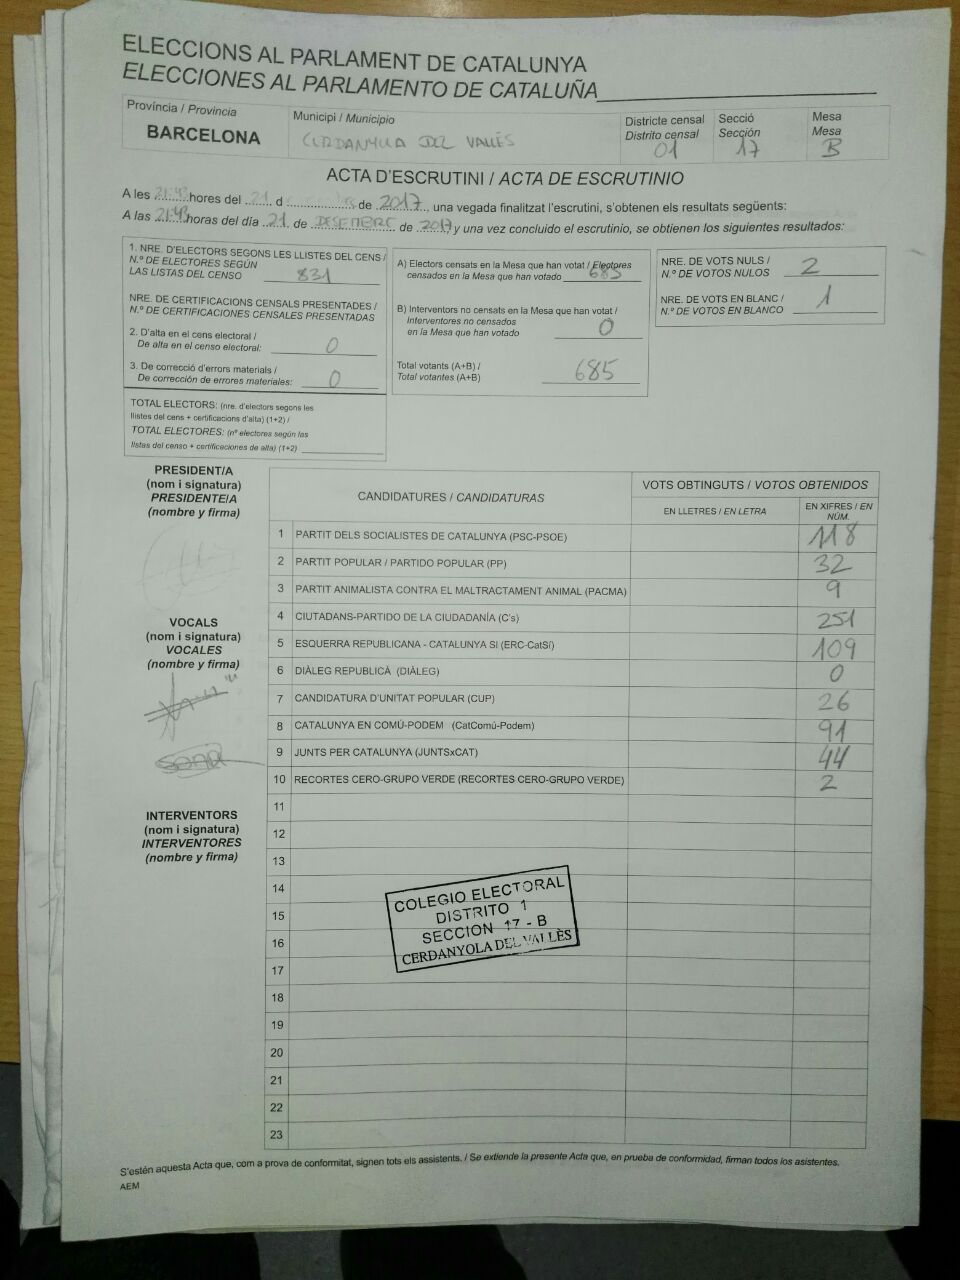 ELECCIONS AL PARLAMENT DE CATALUNYA
ELECCIONES AL PARLAMENTO DE CATALUÑA
Província / Provincia
BARCELONA
Municipi / Municipio
CERDANYOLA DEL VALLÈS
Districte censal
Distrito censal
01
Secció
Sección
17
Mesa
Mesa
B
ACTA D'ESCRUTINI / ACTA DE ESCRUTINIO
A les 21:43 hores del 21 d de 2017, una vegada finalitzat l'escrutini, s'obtenen els resultats següents:
A las 21:43 horas del día 21 de DESEMBRE de 2017 y una vez concluido el escrutinio, se obtienen los siguientes resultados:
1. NRE. D'ELECTORS SEGONS LES LLISTES DEL CENS /
N.º DE ELECTORES SEGÚN
LAS LISTAS DEL CENSO 831
NRE. DE CERTIFICACIONS CENSALS PRESENTADES /
N.º DE CERTIFICACIONES CENSALES PRESENTADAS
2. D'alta en el cens electoral /
De alta en el censo electoral: 0
3. De correcció d'errors materials /
De corrección de errores materiales: 0
TOTAL ELECTORS: (nre. d'electors segons les
llistes del cens + certificacions d'alta) (1+2) /
TOTAL ELECTORES: (nº electores según las
listas del censo + certificaciones de alta) (1+2)
A) Electors censats en la Mesa que han votat / Electores
censados en la Mesa que han votado 685
B) Interventors no censats en la Mesa que han votat /
Interventores no censados
en la Mesa que han votado 0
Total votants (A+B) /
Total votantes (A+B) 685
NRE. DE VOTS NULS /
N.º DE VOTOS NULOS 2
NRE. DE VOTS EN BLANC /
N.º DE VOTOS EN BLANCO 1
PRESIDENT/A
(nom i signatura)
PRESIDENTE/A
(nombre y firma)
VOCALS
(nom i signatura)
VOCALES
(nombre y firma)
INTERVENTORS
(nom i signatura)
INTERVENTORES
(nombre y firma)
CANDIDATURES / CANDIDATURAS
VOTS OBTINGUTS / VOTOS OBTENIDOS
EN LLETRES / EN LETRA
EN XIFRES / EN
NÚM.
1 PARTIT DELS SOCIALISTES DE CATALUNYA (PSC-PSOE) 118
2 PARTIT POPULAR / PARTIDO POPULAR (PP) 32
3 PARTIT ANIMALISTA CONTRA EL MALTRACTAMENT ANIMAL (PACMA) 9
4 CIUTADANS-PARTIDO DE LA CIUDADANÍA (C's) 251
5 ESQUERRA REPUBLICANA - CATALUNYA SI (ERC-CatSí) 109
6 DIÀLEG REPUBLICÀ (DIÀLEG) 0
7 CANDIDATURA D'UNITAT POPULAR (CUP) 26
8 CATALUNYA EN COMÚ-PODEM (CatComú-Podem) 91
9 JUNTS PER CATALUNYA (JUNTSxCAT) 44
10 RECORTES CERO-GRUPO VERDE (RECORTES CERO-GRUPO VERDE) 2
11
12
13
14
15
16
17
18
19
20
21
22
23
COLEGIO ELECTORAL
DISTRITO 1
SECCION 17 - B
CERDANYOLA DEL VALLÈS
S'estén aquesta Acta que, com a prova de conformitat, signen tots els assistents. / Se extiende la presente Acta que, en prueba de conformidad, firman todos los asistentes.
AEM